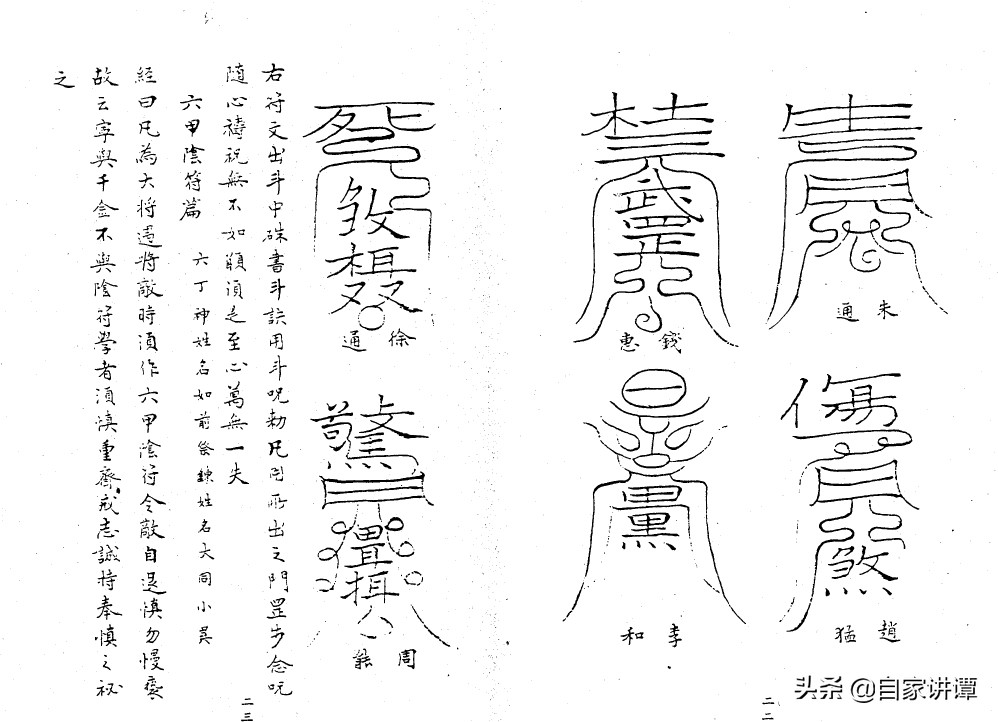 朱通
趙猛
錢惠
李和
二二
徐通
周能
右符文出斗中硃書斗訣用斗呪勅凡所出之門罡步念呪
隨心禱祝無不如願須是至心萬無一失
六甲陰符篇 六丁神姓名如前祭鍊姓名大同小異
經曰凡為大將遇將敵時須作六甲陰符令敵自退慎勿慢褻
故云寧與千金不與陰符學者須慎重齋戒志誠持奉慎之祕
之
二三
头条 @自家讲谭